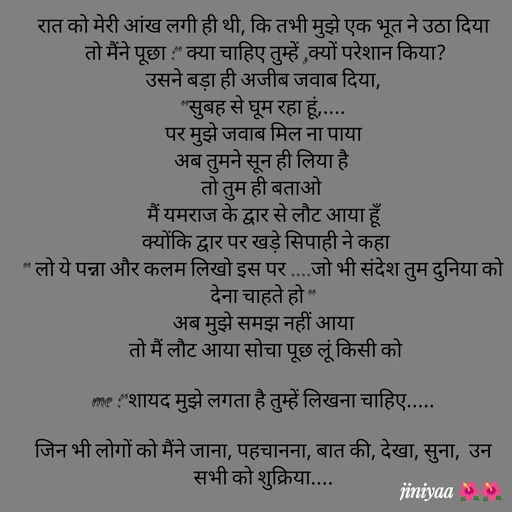 रात को मेरी आंख लगी ही थी, कि तभी मुझे एक भूत ने उठा दिया
तो मैंने पूछा :" क्या चाहिए तुम्हें ,क्यों परेशान किया?
उसने बड़ा ही अजीब जवाब दिया,
"सुबह से घूम रहा हूं,....
पर मुझे जवाब मिल ना पाया
अब तुमने सून ही लिया है
तो तुम ही बताओ
मैं यमराज के द्वार से लौट आया हूँ
क्योंकि द्वार पर खड़े सिपाही ने कहा
" लो ये पन्ना और कलम लिखो इस पर ....जो भी संदेश तुम दुनिया को
देना चाहते हो "
अब मुझे समझ नहीं आया
तो मैं लौट आया सोचा पूछ लूं किसी को
me :"शायद मुझे लगता है तुम्हें लिखना चाहिए.....
जिन भी लोगों को मैंने जाना, पहचानना, बात की, देखा, सुना, उन
सभी को शुक्रिया....
jiniyaa 🌺🌺